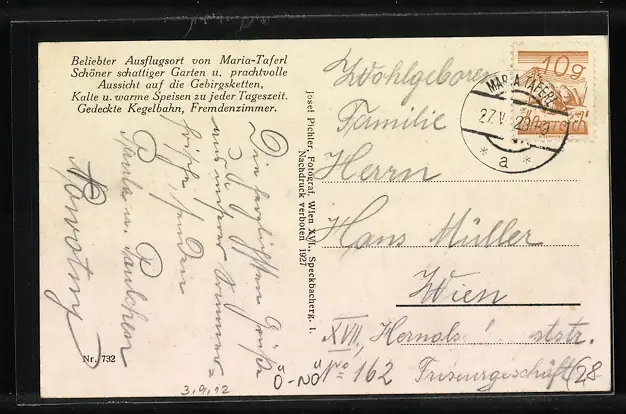 Beliebter Ausflugsort von Maria-Taferl
Schöner schattiger Garten u. prachtvolle
Aussicht auf die Gebirgsketten,
Kalte u. warme Speisen zu jeder Tageszeit.
Gedeckte Kegelbahn, Fremdenzimmer.
Die herzlichsten Grüße
aus unserer Sommer-
frische, senden
Paula u. Paulchen
Nowotny
Nr. 732
3.9.12
Ö-NÖ
Josef Pichler, Fotograf, Wien XVI., Speckbacherg. 1.
Nachdruck verboten 1927
10g
MARIA TAFERL
27.V.
* a *
Wohlgeboren
Familie
Herrn
Hans Müller
Wien
XVII, Hernals
str.
No 162 Friseurgeschäft
(28